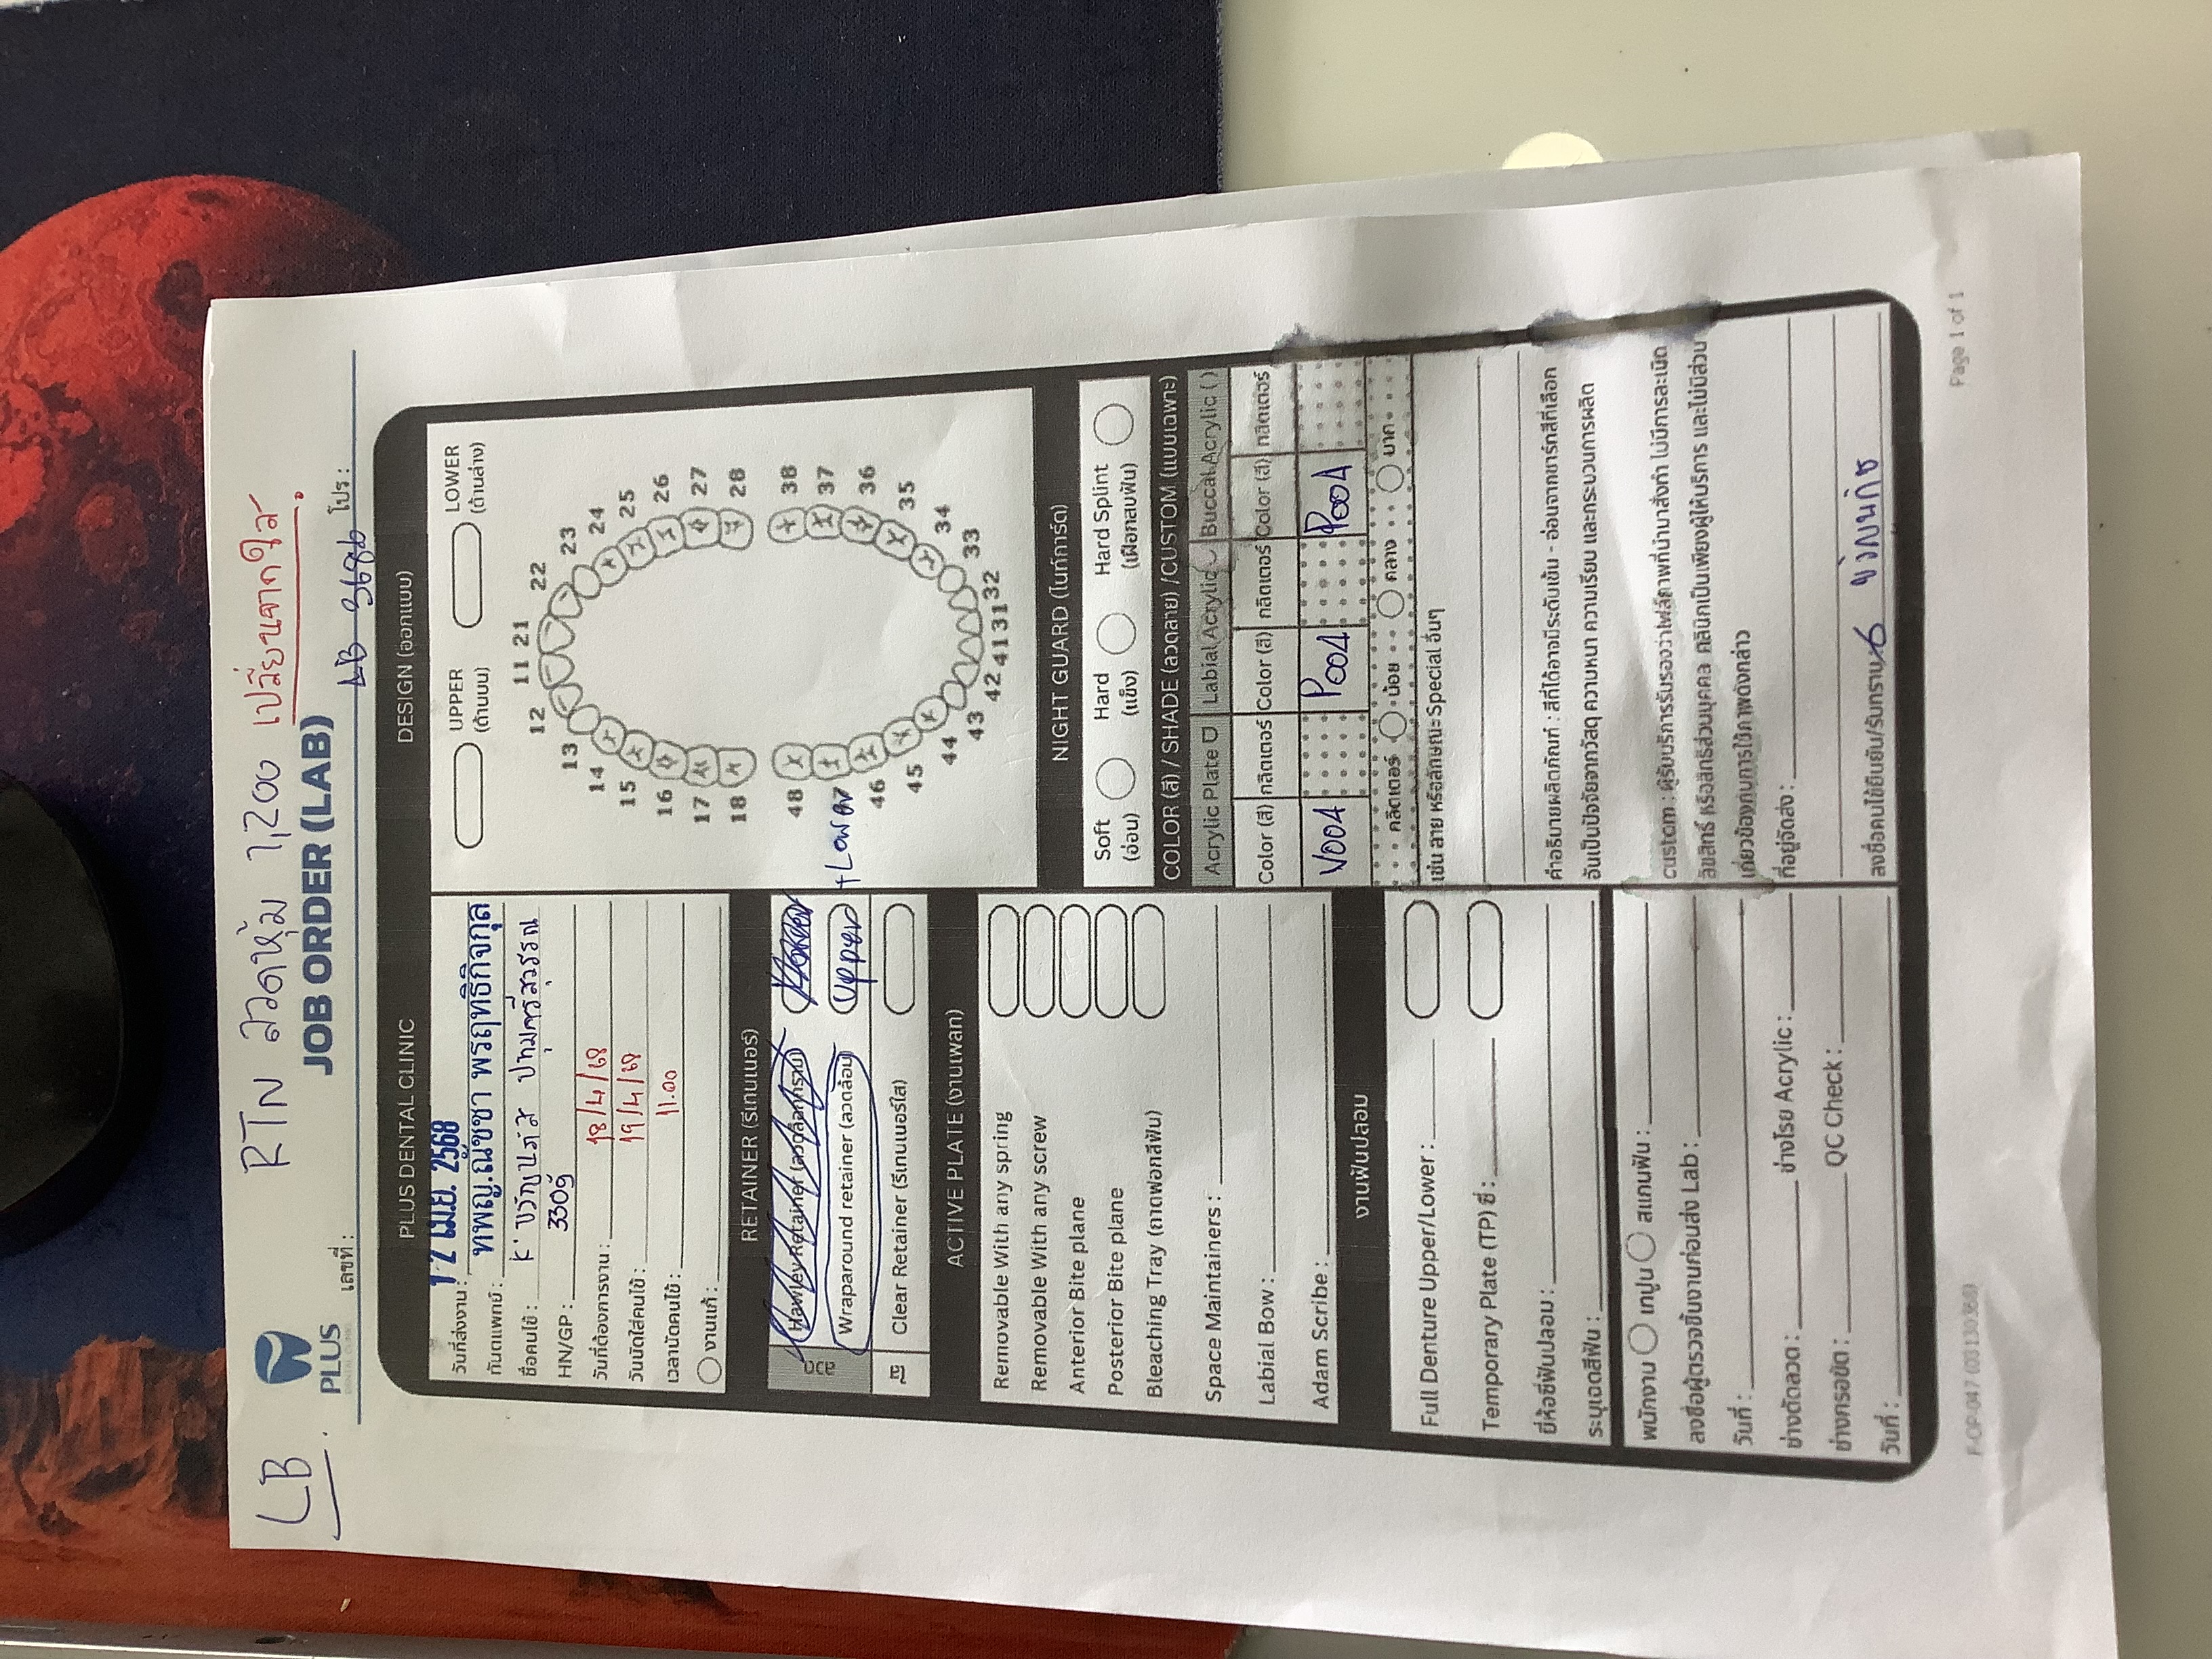 LB
RTN ลวดหุ้ม 1,200 เปลี่ยนจากใส
PLUS
DENTAL CLINIC
JOB ORDER (LAB)
เลขที่ :
LB 3686
โปร :
PLUS DENTAL CLINIC
วันที่ส่งงาน : 12 เม.ย. 2568
ทันตแพทย์ : ทพญ.ณัชชา พรฤทธิกิจกุล
ชื่อคนไข้ : K. ขวัญนภัส ปทุมศรีสุวรรณ
HN/GP : 3309
วันที่ต้องการงาน : 18/4/68
วันนัดใส่คนไข้ : 19/4/68
เวลานัดคนไข้ : 11.00
งานแก้ :
RETAINER (รีเทนเนอร์)
ลวด
Hawley Retainer (ลวดล็อกกราม)
Wraparound retainer (ลวดล้อม) Upper + Lower
ใส
Clear Retainer (รีเทนเนอร์ใส)
ACTIVE PLATE (งานเพลท)
Removable With any spring
Removable With any screw
Anterior Bite plane
Posterior Bite plane
Bleaching Tray (ถาดฟอกสีฟัน)
Space Maintainers :
Labial Bow :
Adam Scribe :
งานฟันปลอม
Full Denture Upper/Lower :
Temporary Plate (TP) ซี่ :
ยี่ห้อซี่ฟันปลอม :
ระบุเฉดสีฟัน :
พนักงาน เทปูน สแกนฟัน :
ลงชื่อผู้ตรวจชิ้นงานก่อนส่ง Lab :
วันที่ :
ช่างดัดลวด : ช่างโรย Acrylic :
ช่างกรอขัด : QC Check :
วันที่ :
DESIGN (ออกแบบ)
UPPER LOWER
(ด้านบน) (ด้านล่าง)
11 21
12 22
13 23
14 24
15 25
16 26
17 27
18 28
48 38
37
46 36
45 35
44 34
43 33
42 41 31 32
NIGHT GUARD (ไนท์การ์ด)
Soft Hard Hard Splint
(อ่อน) (แข็ง) (เฝือกสบฟัน)
COLOR (สี) / SHADE (ลวดลาย) /CUSTOM (แบบเฉพาะ)
Acrylic Plate Labial Acrylic Buccal Acrylic ( )
Color (สี) กลิตเตอร์ Color (สี) กลิตเตอร์ Color (สี) กลิตเตอร์
V004 P004 P004
กลิตเตอร์ น้อย กลาง มาก
เช่น ลาย หรือลักษณะ Special อื่นๆ
คำอธิบายผลิตภัณฑ์ : สีที่ได้อาจมีระดับเข้ม - อ่อนจากชาร์ทสีที่เลือก
อันเป็นปัจจัยจากวัสดุ ความหนา ความเรียบ และกระบวนการผลิต
custom : ผู้รับบริการรับรองว่าไฟล์ภาพที่นำมาสั่งทำ ไม่มีการละเมิด
ลิขสิทธิ์ หรือสิทธิส่วนบุคคล คลินิกเป็นเพียงผู้ให้บริการ และไม่มีส่วน
เกี่ยวข้องกับการใช้ภาพดังกล่าว
ที่อยู่จัดส่ง :
ลงชื่อคนไข้ยืนยัน/รับทราบ : ขวัญนภัส
F-OP-047 (03130368)
Page 1 of 1